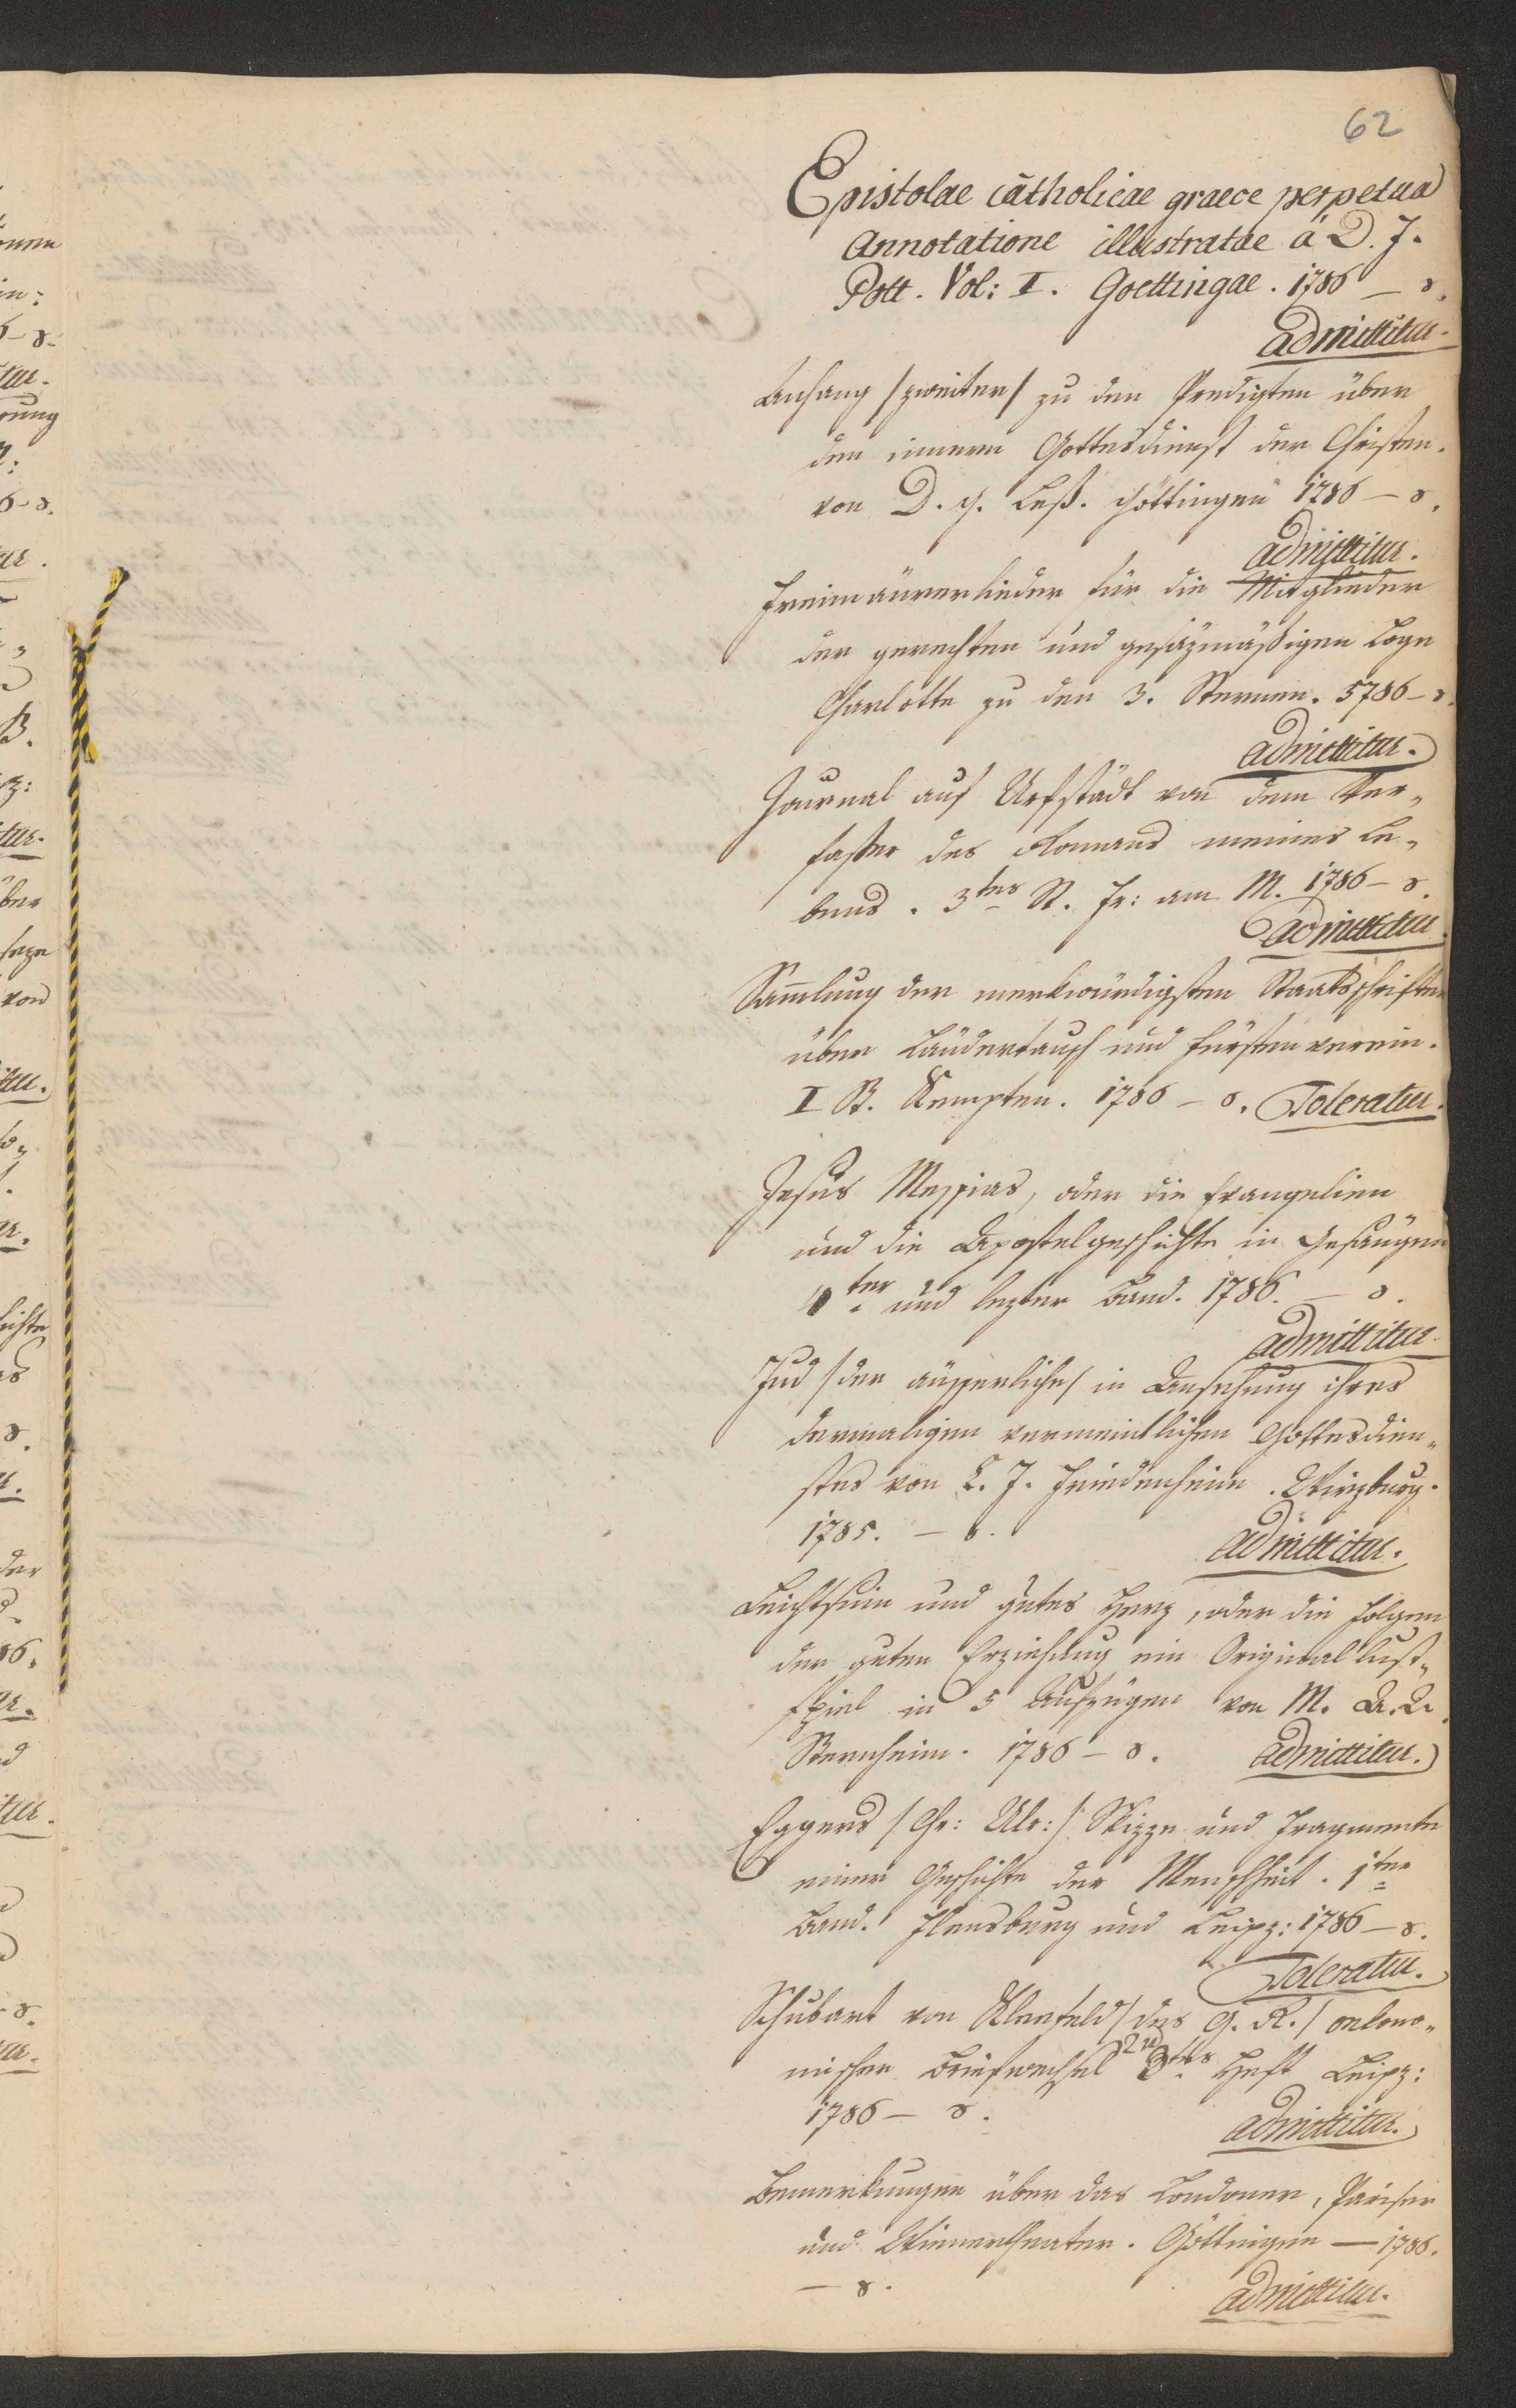 62
Epistolae catholicae graece perpetua
Annotatione illustratae á D. J.
Pott. Vol: I. Goettingae. 1786 — 8.
admittitur.
Anhang /zweiter/ zu den Predigten über
den innern Gottesdienst der Christen.
von D. G. Leß. Göttingen 1786 — 8.
admittitur.
Freimäurerlieder für die Mitglieder
der gerechten und gesäzmäßigen Loge
Charlotte zu den 3. Sternen. 5786 — 8.
admittitur.
Journal auf Urfstädt von dem Ver„
faßer des Romans meines Le„
bens. 3tes St. Fr: am M. 1786 — 8.
admittitur.
Samlung der merkwürdigsten Staatsschriften
über Ländertausch und Fürstenverein.
I B. Kempten. 1786 — 8. Toleratur.
Jesus Messias, oder die Evangelien
und die Apostelgeschichte in Gesängen
4ter und lezter Band. 1786. — 8.
admittitur.
Jud /der äusserliche/ in Ansehung ihres
dermaligen vermeintlichen Gottesdien„
stes von C. J. Friedenheim. Wirzburg.
1785. — 8.
admittitur.
Leichtsinn und gutes Herz, oder die Folgen
der guten Erziehung ein Original lust„
spiel in 5 Aufzügen von M.
Sternheim. 1786 — 8. admittitur.
Eggers /Ch: Ulr:/ Skizze und Fragmente
einer Geschichte der Menschheit. 1ter
Band. Flensburg und Leipz: 1786 — 8.
Toleratur.
Schubart von Kleefeld /des G. R./ oekono„
mischer Briefwechsel 3tes Heft Leipz:
1786 — 8.
admittitur.
Bemerkungen über das Londoner, Pariser
und Wienertheater. Göttingen — 1786.
— 8.
admittitur.